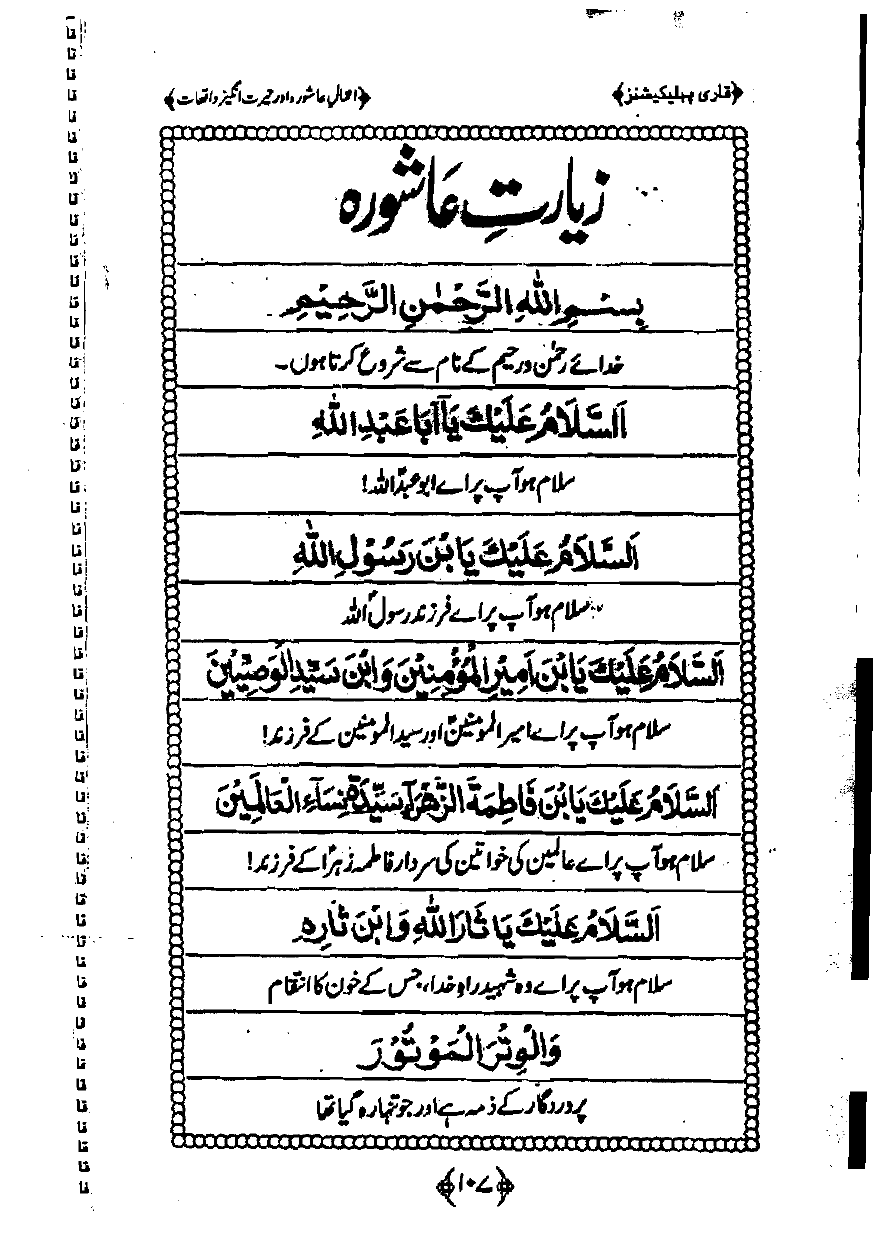 ﴿قاری پبلیکیشنز﴾ ﴿اعمالِ عاشورہ اور حیرت انگیز واقعات﴾
زیارتِ عاشورہ
بِسْمِ اللهِ الرَّحْمٰنِ الرَّحِيْمِ
خدائے رحمٰن و رحیم کے نام سے شروع کرتا ہوں۔
اَلسَّلَامُ عَلَيْكَ يَآ اَبَا عَبْدِ اللهِ
سلام ہو آپ پر اے ابو عبدؑاللہ!
اَلسَّلَامُ عَلَيْكَ يَا بْنَ رَسُوْلِ اللهِ
سلام ہو آپ پر اے فرزند رسولؐ اللہ
اَلسَّلَامُ عَلَيْكَ يَا بْنَ اَمِيْرِ الْمُؤْمِنِيْنَ وَابْنَ سَيِّدِ الْوَصِيِّيْنَ
سلام ہو آپ پر اے امیر المومنینؑ اور سید المومنین کے فرزند!
اَلسَّلَامُ عَلَيْكَ يَا بْنَ فَاطِمَةَ الزَّهْرَآءِ سَيِّدَةِ نِسَآءِ الْعَالَمِيْنَ
سلام ہو آپ پر اے عالمین کی خواتین کی سردار فاطمہ زہراؑ کے فرزند!
اَلسَّلَامُ عَلَيْكَ يَا ثَارَ اللهِ وَابْنَ ثَارِهٖ
سلام ہو آپ پر اے وہ شہید راہِ خدا، جس کے خون کا انتقام
وَالْوِتْرَ الْمَوْتُوْرَ
پروردگار کے ذمہ ہے اور جو تنہا رہ گیا تھا
﴿۱۰۷﴾